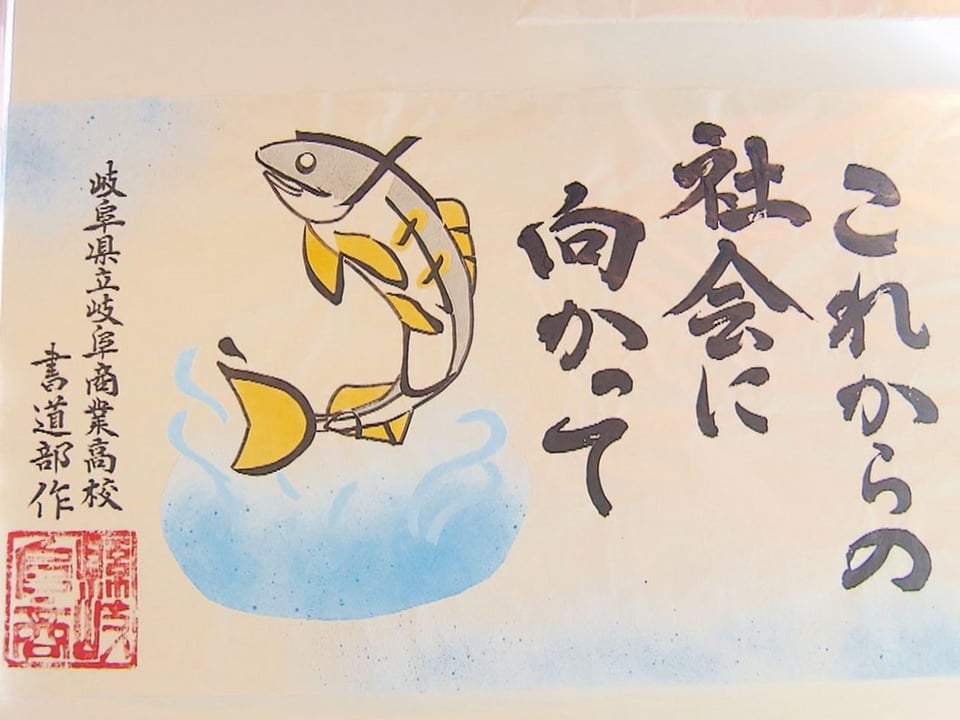 これからの
社会に
向かって
岐阜県立岐阜商業高校
書道部作
縣岐
阜商